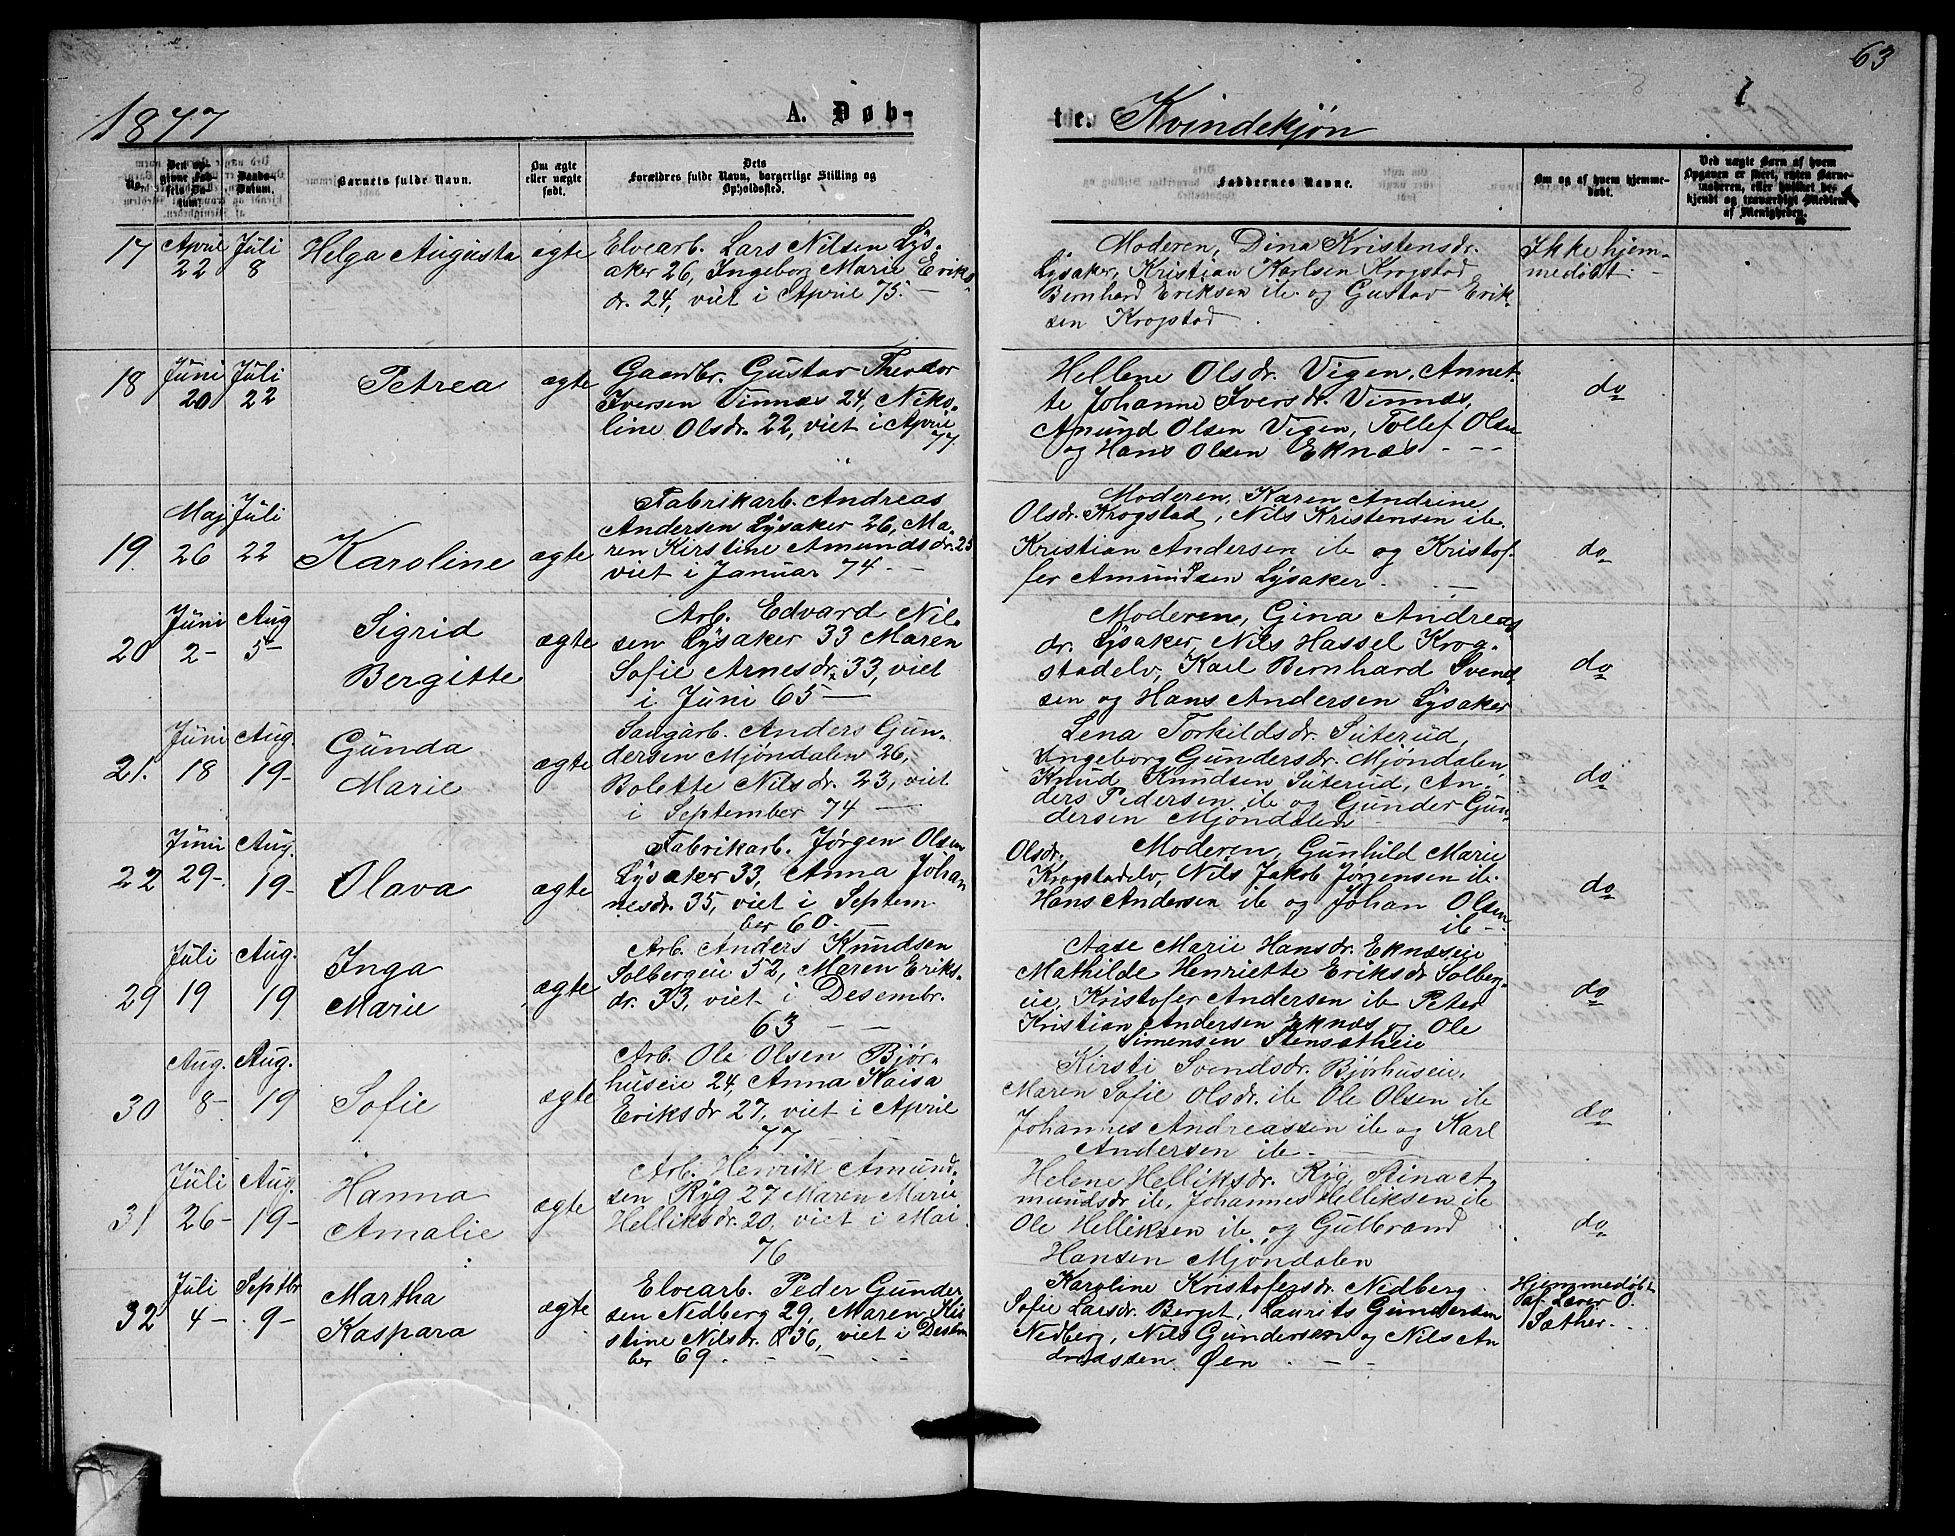 63
1877
A. Døb-
te. Kvindekjøn
No.
Den op-
givne Fød-
sels Da-
tum.
Daabs-
Datum.
Barnets fulde Navn.
Om ægte
eller uægte
født.
Dets
Forældres fulde Navn, borgerlige Stilling og
Opholdssted.
Faddernes Navne.
Om og af hvem hjemme-
døbt.
Ved uægte Barn af hvem
Opgaven er skeet, enten Barne-
moderen, eller hvilket be-
kjendt og troværdigt Medlem
af Menigheden.
17 April 22 Juli 8 Helga Augusta ægte
Elvearb. Lars Nilsen Lys-
aker 26, Ingeborg Marie Eriks-
dr. 24, viet i April 75. —
Moderen, Dina Kristensdr.
Lysaker, Kristian Karlsen Krogstad
Bernhard Eriksen ib. og Gustav Erik-
sen Krogstad
Ikke hjem-
medøbt. —
18 Juni 20 Juli 22 Petrea ægte
Gaardbr. Gustav Theodor
Iversen Vinnæs 24, Niko-
line Olsdr. 22, viet i April
77.
Hellene Olsdr. Vigen, Annet-
te Johanne Iversdr. Vinnæs,
Amund Olsen Vigen, Tollef Olsen
og Hans Olsen Eknæs - - -
do
19. Maj 26 Juli 22 Karoline ægte
Fabrikarb. Andreas
Andersen Lysaker 26, Ma-
ren Kirstine Amundsdr. 25
viet i Januar 74 - -
Moderen, Karen Andrine
Olsdr. Krogstad, Nils Kristensen ib.
Kristian Andersen ib og Kristof-
fer Amundsen Lysaker. —
do
20 Juni 2- Aug 5- Sigrid
Bergitte
ægte
Arb. Edvard Nil-
sen Lysaker 33 Maren
Sofie Arnesdr. 33, viet
i Juni 65 —
Moderen, Gina Andreas
dr. Lysaker, Nils Hassel Krog-
stadelv, Karl Bernhard Svend-
sen og Hans Andersen Lysaker
do
21. Juni 18 Aug. 19- Gunda
Marie
ægte
Saugarb. Anders Gun-
dersen Mjøndalen 26,
Bolette Nilsdr. 23, viet
i September 74 —
Lena Torkildsdr. Suterud,
Ingeborg Gundersdr. Mjøndalen,
Knud Knudsen Suterud, An-
ders Pedersen ib og Gunder Gun-
dersen Mjøndalen
do
22 Juni 29-. Aug. 19- Olava ægte
Fabrikarb. Jørgen Olsen
Lysaker 33, Anna Johan
nesdr. 35, viet i Septem
ber 60. —
Olsdr, Moderen, Gunhild Marie
Krogstadelv, Nils Jakob Jørgensen ib.
Hans Andersen ib og Johan Olsen
ib -
do
29 Juli 19 Aug. 19 Inga
Marie
ægte
Arb. Anders Knudsen
Solbergeie 52, Maren Eriks-
dr. 33, viet i Desembr.
63 - -
Aase Marie Hansdr. Eknæseie
Mathilde Henriette Eriksdr Solberg-
eie, Kristofer Andersen ib Peter
Kristian Andersen Eknæs og Ole
Simensen Stensætheie
do
30 Aug. 8- Aug. 19 Sofie ægte
Arb. Ole Olsen Bjør-
huseie 24, Anna Kaisa
Eriksdr 27, viet i April
77
Kirsti Svendsdr. Bjørhuseie,
Maren Sofie Olsdr. ib Ole Olsen ib
Johannes Andreassen ib og Karl
Andersen ib. —
do
31 Juli 26- Aug. 19- Hanna
Amalie
ægte
Arb. Henrik Amund-
sen Ryg 27 Maren Marie
Helliksdr. 20, viet i Mai
76
Helene Helliksdr. Ryg, Stina A-
mundsdr ib, Johannes Helliksen ib
Ole Helliksen ib, og Gulbrand
Hansen Mjøndalen
do
32 Juli 4- Septbr 9- Martha
Kaspara
ægte
Elvearb. Peder Gunder
sen Nedberg 29, Maren Kri
stine Nilsdr. 36, viet i Desem
ber 69.
Karoline Kristofersdr. Nedberg
Sofie Larsdr. Berget, Laurits Gundersen
Nedberg, Nils Gundersen og Nils An
dreassen Øen
Hjemmedøbt
af Lærer O.
Sæther.